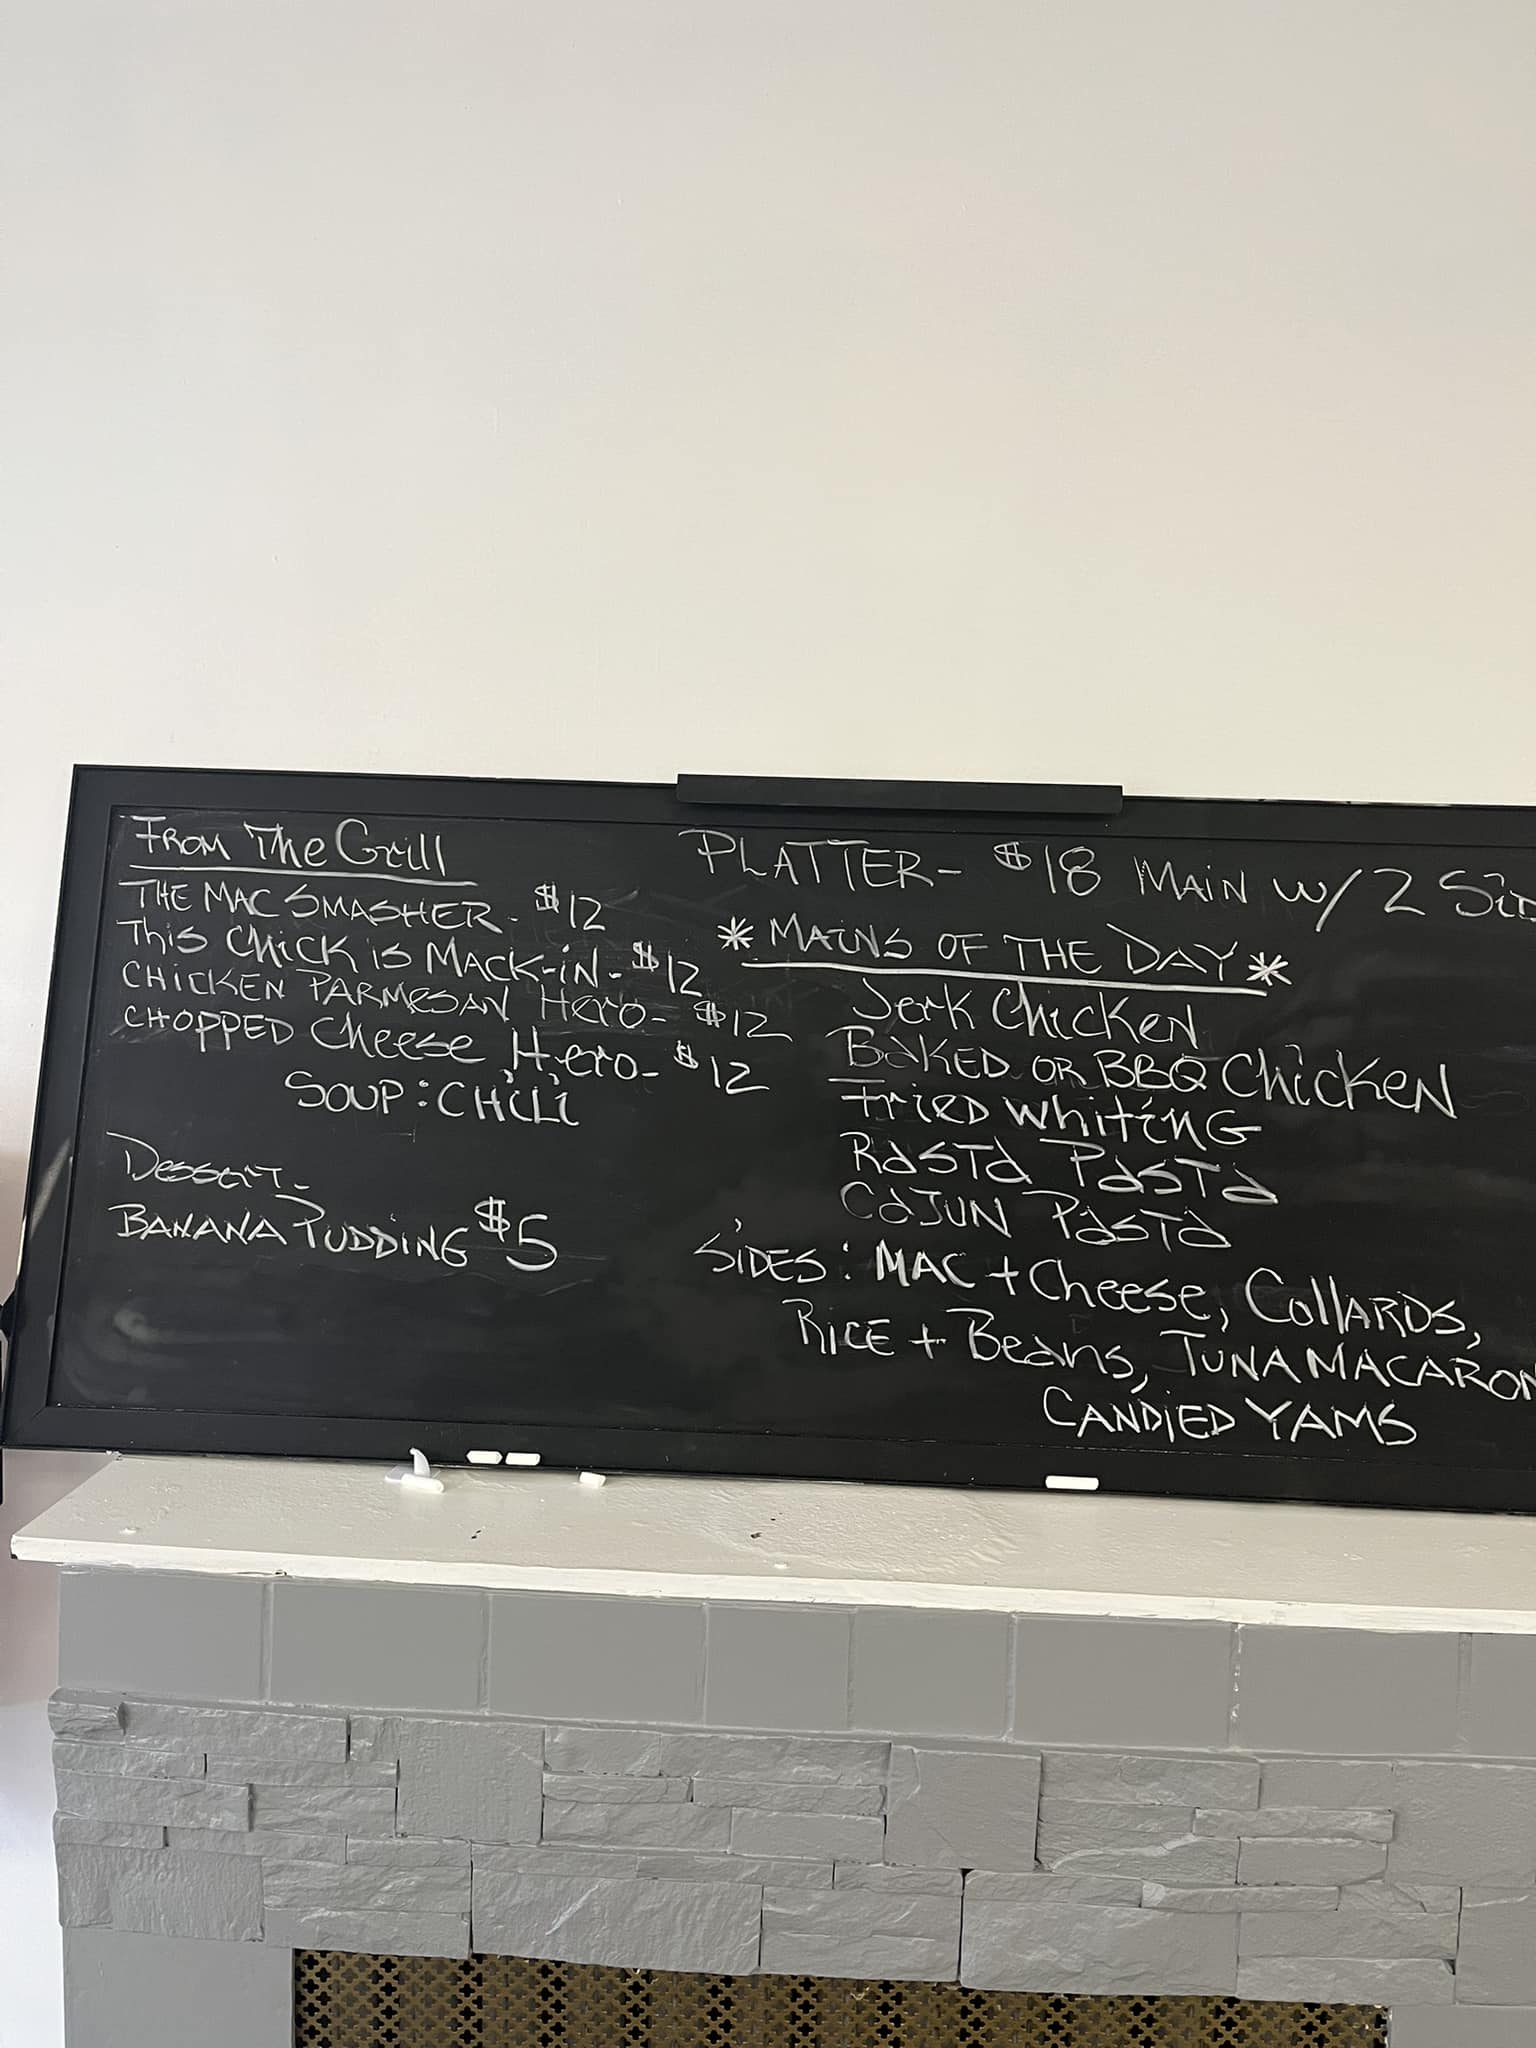 From The Grill
THE MAC SMASHER - $12
This Chick is Mack-in - $12
CHICKEN PARMESAN Hero - $12
CHOPPED Cheese Hero - $12
SOUP: CHILI
Dessert -
BANANA PUDDING $5
PLATTER - $18 MAIN w/ 2 Sid
* MAINS OF THE DAY *
Jerk Chicken
BAKED OR BBQ Chicken
Fried Whiting
Rasta Pasta
Cajun Pasta
SIDES: MAC + Cheese, Collards,
Rice + Beans, TUNA MACARON
CANDIED YAMS